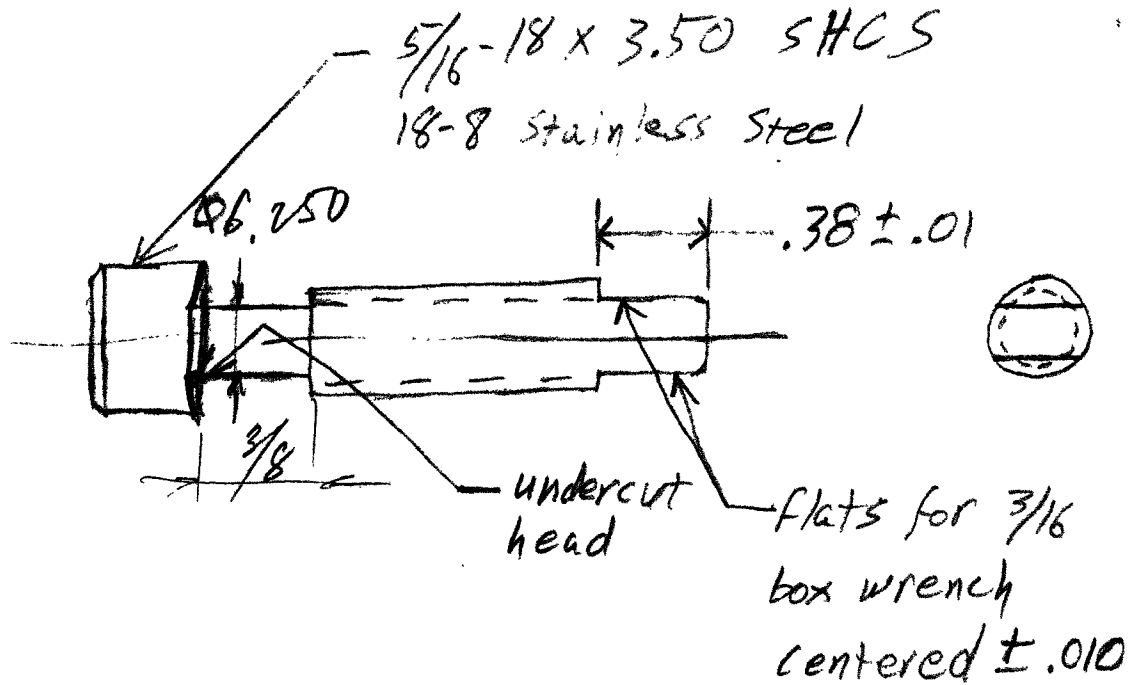 5/16-18 x 3.50 SHCS
18-8 Stainless Steel
Ø6.250
.38 ± .01
3/8
undercut
head
flats for 3/16
box wrench
centered ± .010